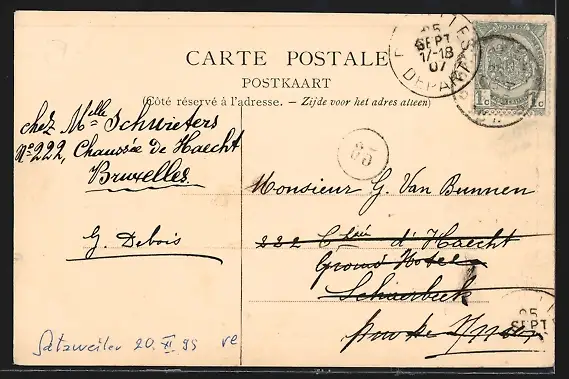 CARTE POSTALE
POSTKAART
(Côté réservé à l'adresse. – Zijde voor het adres alleen)
25
SEPT
17-18
07
DEPART
1c 1c
chez Melle Schwieters
No 222, Chaussée de Haecht
Bruxelles.
G. Debois
Monsieur G. Van Bunnen
222 Ch.ée d'Haecht
Grand Hotel
Schaerbeek
25
SEPT
Satzweiler 20. XI 95 re